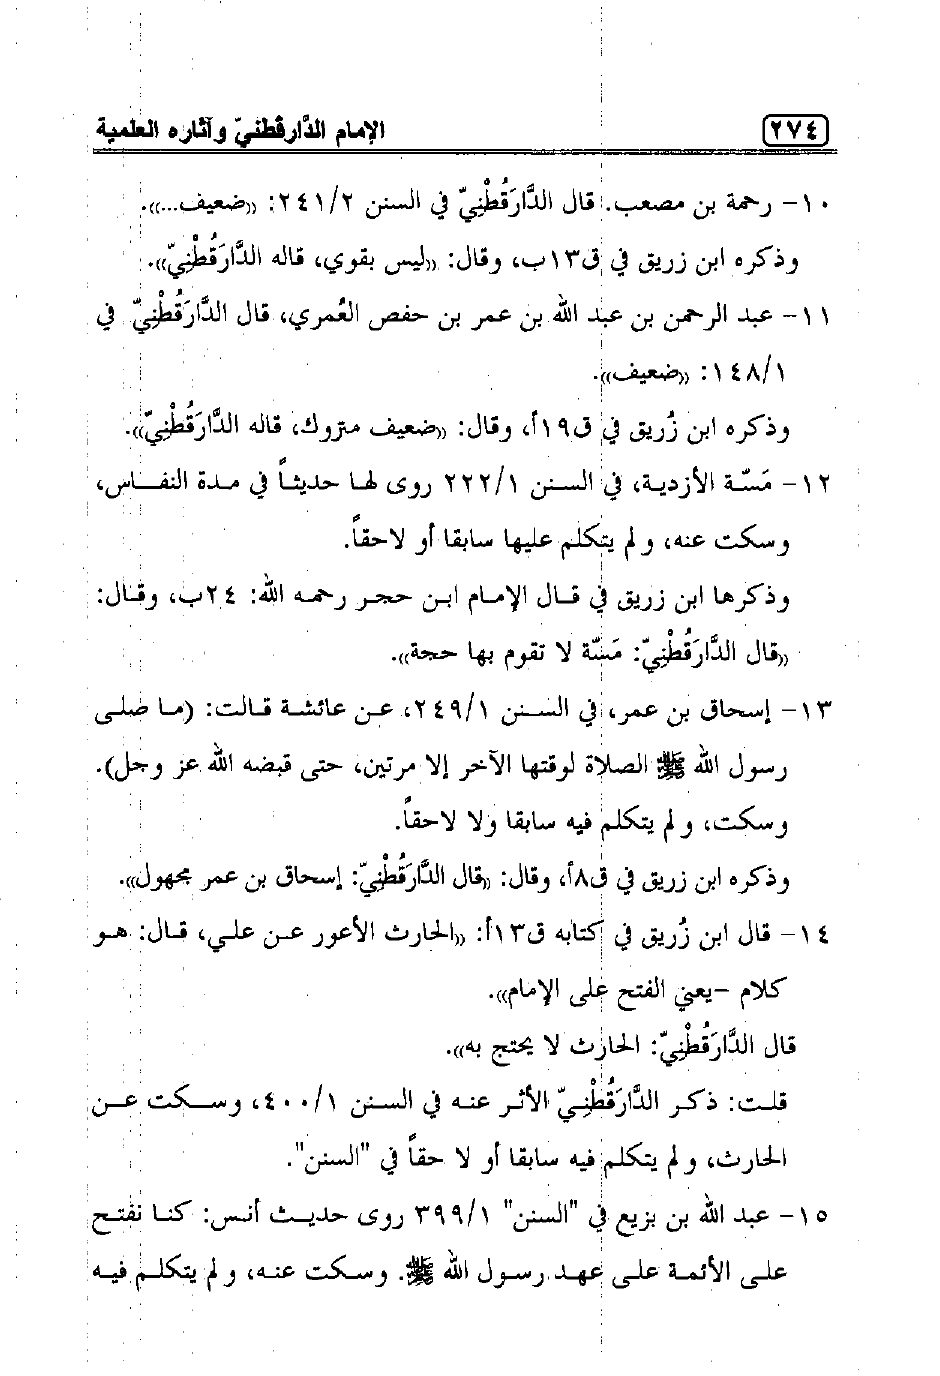 ٢٧٤ الإمام الدَّارقُطنيّ وآثاره العلمية
١٠- رحمة بن مصعب. قال الدَّارَقُطْنِيّ في السنن ٢٤١/٢: «ضعيف...».
وذكره ابن زريق في ق١٣ب، وقال: «ليس بقوي، قاله الدَّارَقُطْنِيّ».
١١- عبد الرحمن بن عبد الله بن عمر بن حفص العُمري، قال الدَّارَقُطْنِيّ في
١٤٨/١: «ضعيف».
وذكره ابن زُريق في ق١٩أ، وقال: «ضعيف متروك، قاله الدَّارَقُطْنِيّ».
١٢- مَسّة الأزدية، في السنن ٢٢٢/١ روى لها حديثاً في مدة النفاس،
وسكت عنه، ولم يتكلم عليها سابقا أو لاحقاً.
وذكرها ابن زريق في قال الإمام ابن حجر رحمه الله: ٢٤ب، وقال:
«قال الدَّارَقُطْنِيّ: مَسّة لا تقوم بها حجة».
١٣- إسحاق بن عمر، في السنن ٢٤٩/١، عن عائشة قالت: (ما صلى
رسول الله ﷺ الصلاة لوقتها الآخر إلا مرتين، حتى قبضه الله عز وجل).
وسكت، ولم يتكلم فيه سابقا ولا لاحقاً.
وذكره ابن زريق في ق٨أ، وقال: «قال الدَّارَقُطْنِيّ: إسحاق بن عمر مجهول».
١٤- قال ابن زُريق في كتابه ق١٣أ: «الحارث الأعور عن علي، قال: هو
كلام -يعني الفتح على الإمام».
قال الدَّارَقُطْنِيّ: الحارث لا يحتج به».
قلت: ذكر الدَّارَقُطْنِيّ الأثر عنه في السنن ٤٠٠/١، وسكت عن
الحارث، ولم يتكلم فيه سابقا أو لا حقاً في "السنن".
١٥- عبد الله بن بزيع في "السنن" ٣٩٩/١ روى حديث أنس: كنا نفتح
على الأئمة على عهد رسول الله ﷺ. وسكت عنه، ولم يتكلم فيه